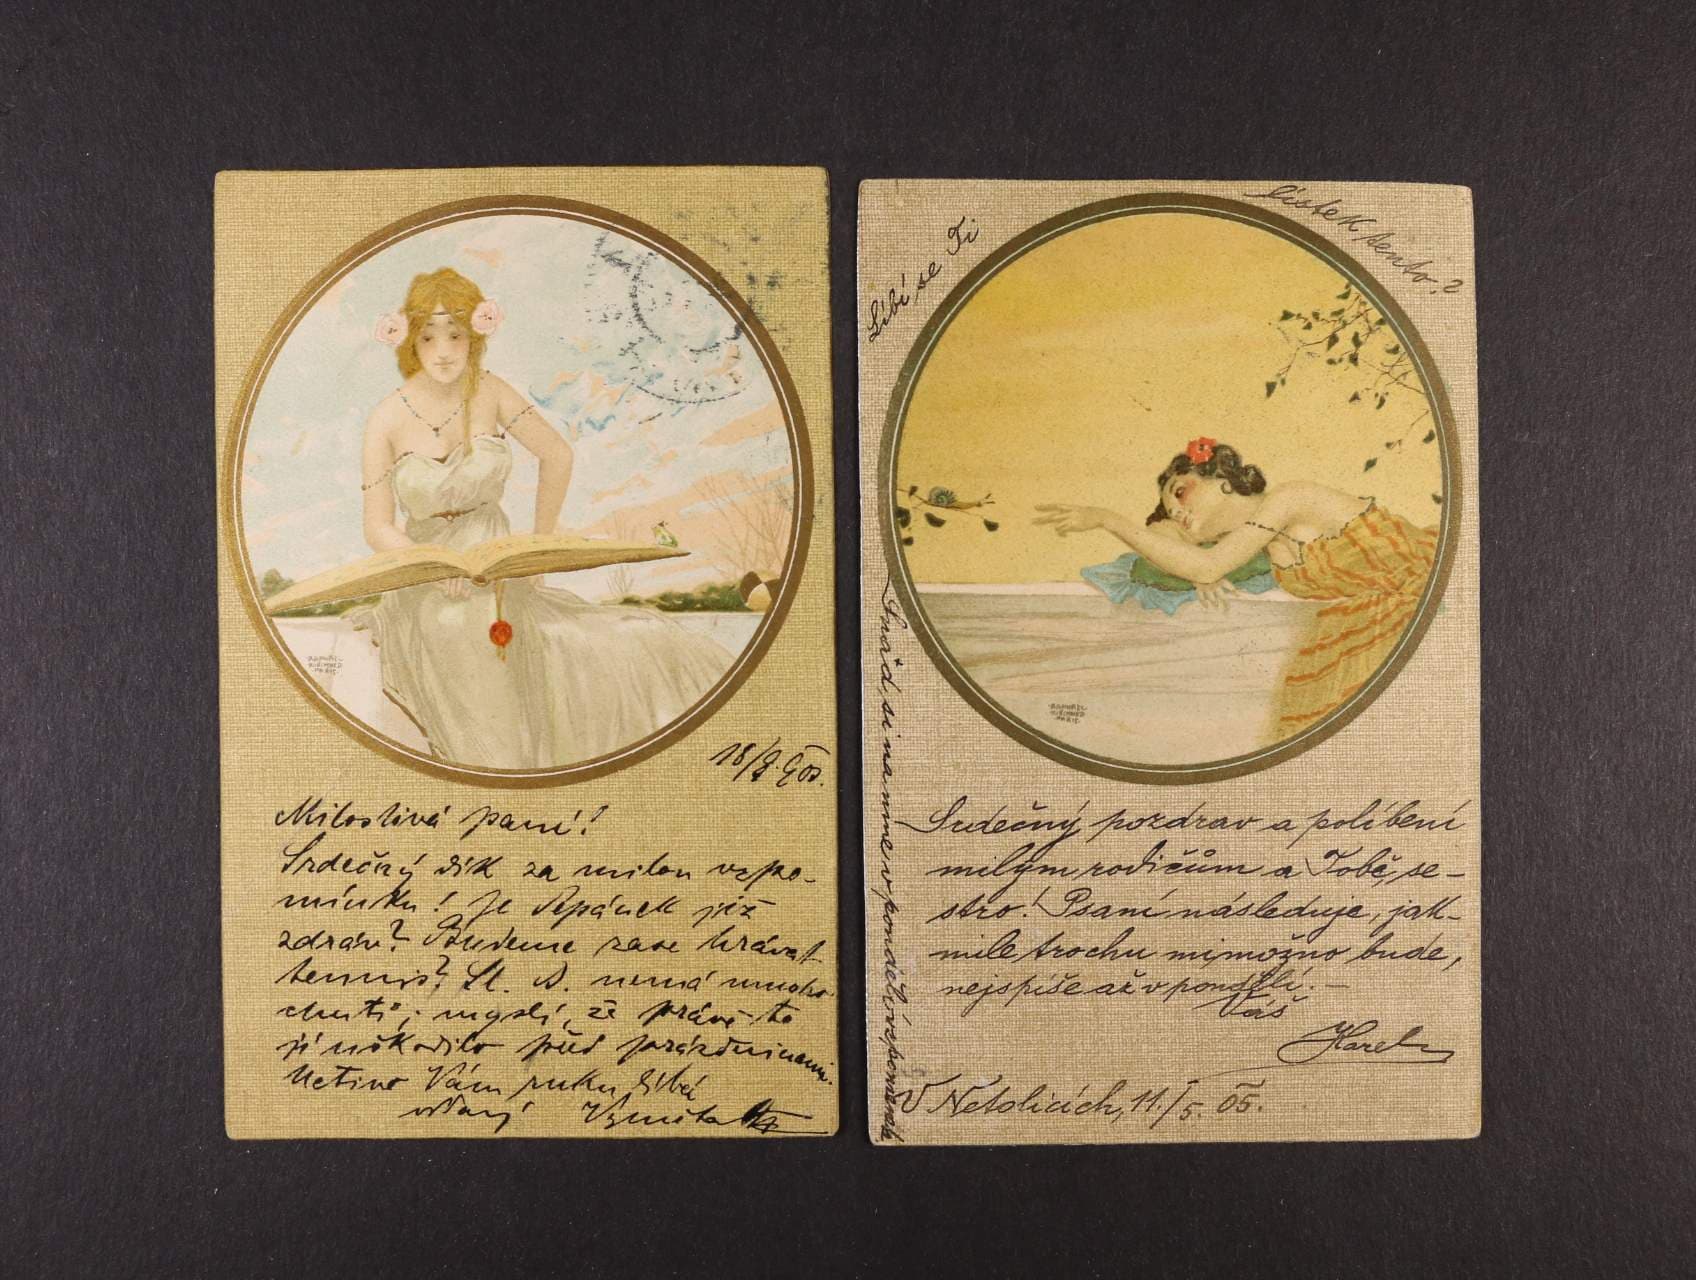 RAPHAEL
KIRCHNER
PARIS
18/9. 903.
Milostivá paní!
Srdečný dík za milou vzpo-
mínku! Je Pepánek již
zdráv? Budeme zase hrávat
tennis? Sl. B. nemá mnoho
chuti; myslí, že právě to
jí uškodilo před prázdninami.
Uctivě Vám ruku líbá
oddaný
Líbí se Ti
lístek tento?
RAPHAEL
KIRCHNER
PARIS
Snad si na mne v pondělí vzpomenete
Srdečný pozdrav a políbení
milým rodičům a Tobě, se-
stro! Psaní následuje, jak-
mile trochu mi možno bude,
nejspíše až v pondělí. —
Váš
Karel
V Netolicích, 11./5. 05.